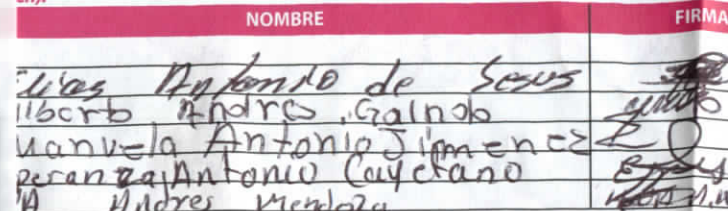 NOMBRE FIRMA
Antonio de Jesus
ilberto Andres Galindo
Manuela Antonio Jimenez
peranza Antonio Cayetano
Andres Mendoza